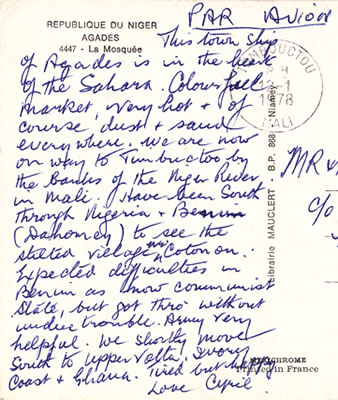 PAR AVION
REPUBLIQUE DU NIGER
AGADES
4447 - La Mosquée
This town ship
of Agades is in the heart
of the Sahara. Colourfull
market, very hot & of
course, dust & sand
everywhere. We are now
on way to Timbuctoo by
the banks of the Niger River
in Mali. Have been South
through Nigeria & Benin
(Dahomey) to see the
stilted village nr Cotonon.
Expected difficulties in
Benin as now communist
State, but got thro' without
undue trouble. Army very
helpful. We shortly move
South to Upper Volta, Ivory
Coast & Ghana. Tired but happy
Love Cyril.
TOMBOUCTOU
12-1
1978
MALI
Librairie MAUCLERT - B.P. 868 - Niamey
MR &
C/O
Printed in France